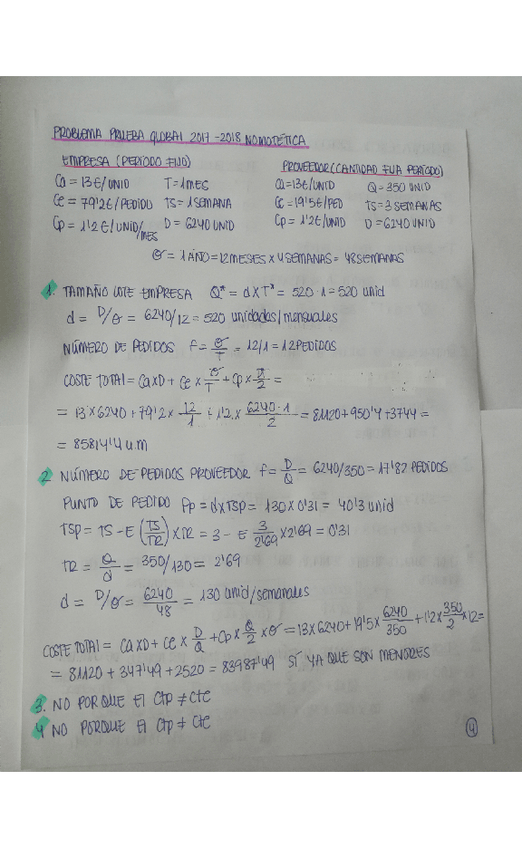 PROBLEMA PRUEBA GLOBAL 2017-2018 NOMOTÉTICA
EMPRESA (PERIODO FIJO)
PROVEEDOR (CANTIDAD FIJA PERIODO)
Ca = 13€/UNID T = 1MES
Ce = 79'2€/PEDIDO TS = 1SEMANA
Cp = 1'2€/UNID/MES D = 6240 UNID
Ca = 13€/UNID Q = 350 UNID
Ce = 19'5€/PED TS = 3 SEMANAS
Cp = 1'2€/UNID D = 6240 UNID
Θ = 1 AÑO = 12 MESES x 4 SEMANAS = 48 SEMANAS
1. TAMAÑO LOTE EMPRESA Q* = d x T* = 520 · 1 = 520 unid
d = D/Θ = 6240/12 = 520 unidades/mensuales
NÚMERO DE PEDIDOS f = Θ/T = 12/1 = 12 PEDIDOS
COSTE TOTAL = Ca x D + Ce x Θ/T + Cp x D/2 =
= 13 x 6240 + 79'2 x 12/1 + 1'2 x 6240·1/2 = 81120 + 950'4 + 3744 =
= 85814'4 u.m
2. NÚMERO DE PEDIDOS PROVEEDOR f = D/Q = 6240/350 = 17'82 PEDIDOS
PUNTO DE PEDIDO Pp = d x TSP = 130 x 0'31 = 40'3 unid
TSP = TS - E (TS/TR) x TR = 3 - E 3/2'69 x 2'69 = 0'31
TR = Q/d = 350/130 = 2'69
d = D/Θ = 6240/48 = 130 unid/semanales
COSTE TOTAL = Ca x D + Ce x D/Q + Cp x Q/2 x Θ = 13 x 6240 + 19'5 x 6240/350 + 1'2 x 350/2 x 12 =
= 81120 + 347'49 + 2520 = 83987'49 SÍ YA QUE SON MENORES
3. NO PORQUE El Ctp ≠ Ctc
4 NO PORQUE El Ctp ≠ Ctc
4